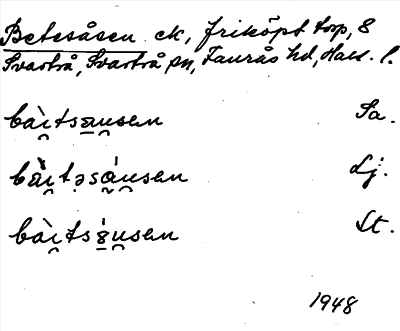 Betesåsen ek, friköpt torp, 8
Svartrå, Svartrå sn, Faurås hd, Hall. l.
bài̯tsa̱u̯sen Sa.
bài̯təsá̱u̯sen Lj.
bài̯ts8̱́u̯sen St.
1948